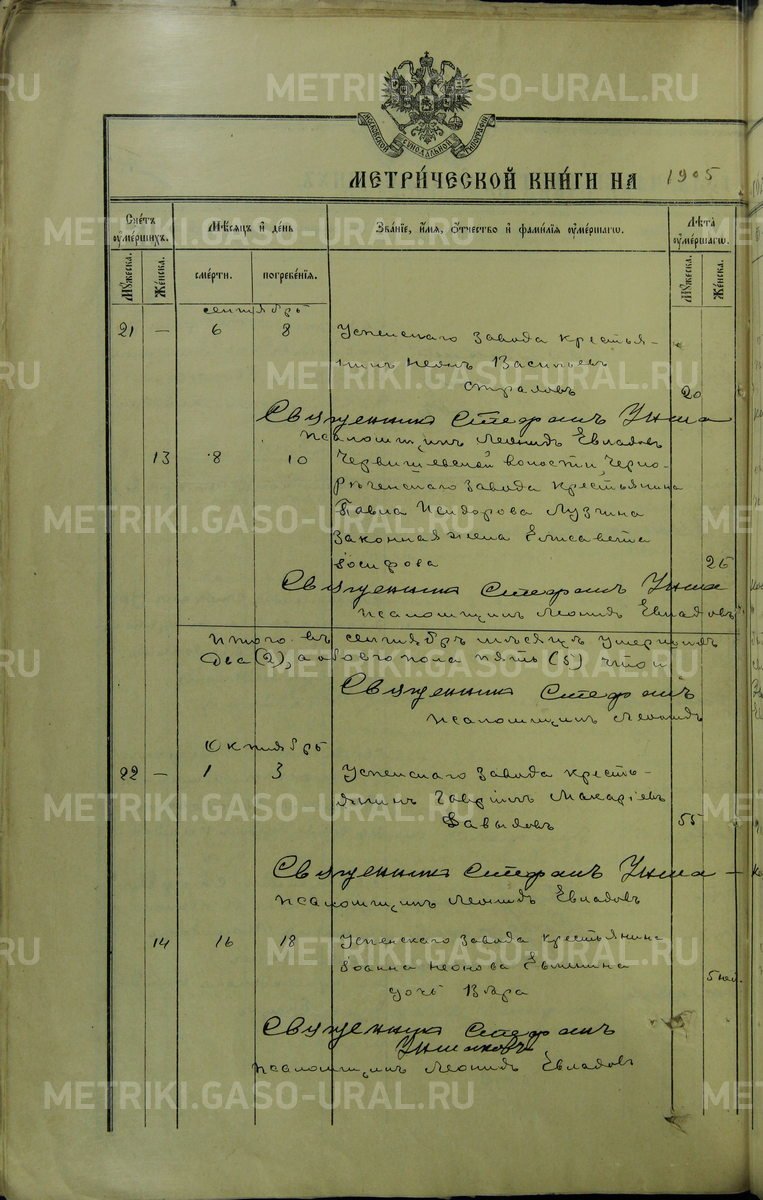 МЕТРИЧЕСКОЙ КНИГИ НА 1905
Счетъ умершихъ.
Мѣсяцъ и день
Званіе, имя, отчество и фамилія умершаго.
Лѣта умершаго.
Мужеска.
Женска.
смерти.
погребенія.
Мужеска.
Женска.
сентябрь
21 — 6 8 Успенскаго завода крестья-
нинъ Неонъ Васильевъ
20
Священникъ Стефанъ
Псаломщикъ Леонидъ Евладовъ
13 8 10 Червишевской волости, Черно-
рѣченскаго завода крестьянина
Павла Исидорова Лузгина
законная жена Елисавета
Іосифова 26
Священникъ Стефанъ
Псаломщикъ Леонидъ Евладовъ
Итого въ сентябрѣ мѣсяцѣ умершихъ
два (2), а обоего пола пять (5)
Священникъ Стефанъ
Псаломщикъ Леонидъ
Октябрь
22 — 1 3 Успенскаго завода кресть-
янинъ Гавріилъ Макаріевъ
Давыдовъ 55
Священникъ Стефанъ
Псаломщикъ Леонидъ Евладовъ
14 16 18 Успенскаго завода крестьянина
Іоанна Неонова
дочь Вѣра 5 нед.
Священникъ Стефанъ
Псаломщикъ Леонидъ Евладовъ
METRIKI.GASO-URAL.RU